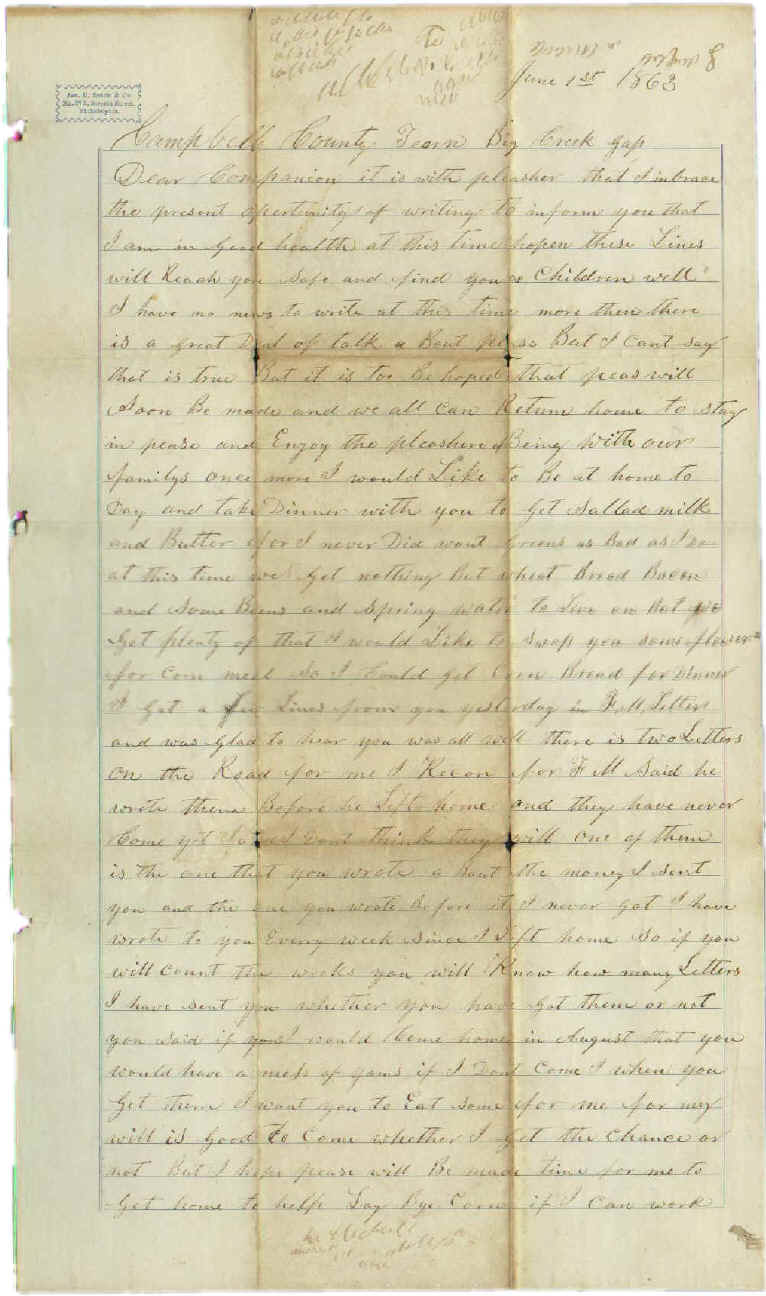 June 1st 1863
Campbell County Tenn Big Creek gap
Dear Companion it is with pleasher that I imbrace
the present opertunity of writing to inform you that
I am in good health at this time hopen these Lines
will Reach you safe and find you & Children well
I have no news to write at this time more then there
is a great Deal of talk a Bout pease But I Cant say
that is true But it is too Be hoped that peas will
Soon Be made and we all can Return home to stay
in pease and Enjoy the pleashere of Being with our
familys once more I would Like to Be at home to
Day and take Dinner with you to get Sallad milk
and Butter for I never Did want Greens as Bad as I do
at this time we get nothing but wheat Bread Bacon
and Some Beens and Spring water to Live on But we
Get plenty of that I would Like to Swap you some flower
for corn meal So I Could get Corn Bread for Dinner
I Got a few Lines from you yesterday in F. M. Letter
and was Glad to hear you was all well there is two Letters
on the Road for me I Recon for F M Said he
wrote them Before he Left home and they have never
Come yet I Dont think they will one of them
is the one that you wrote a bout the money I sent
you and the one you wrote Before it I never got I have
wrote to you Every week since I Left home So if you
will count the weeks you will Know how many Letters
I have sent you whether you have got them or not
you said if I would Come home in August that you
would have a mess of yams if I Dont Come when you
Get them I want you to Eat some for me for my
will is Good to Come whether I get the Chance or
not But I hope pease will Be made time for me to
Get home to help Lay Bye Corn if I can work